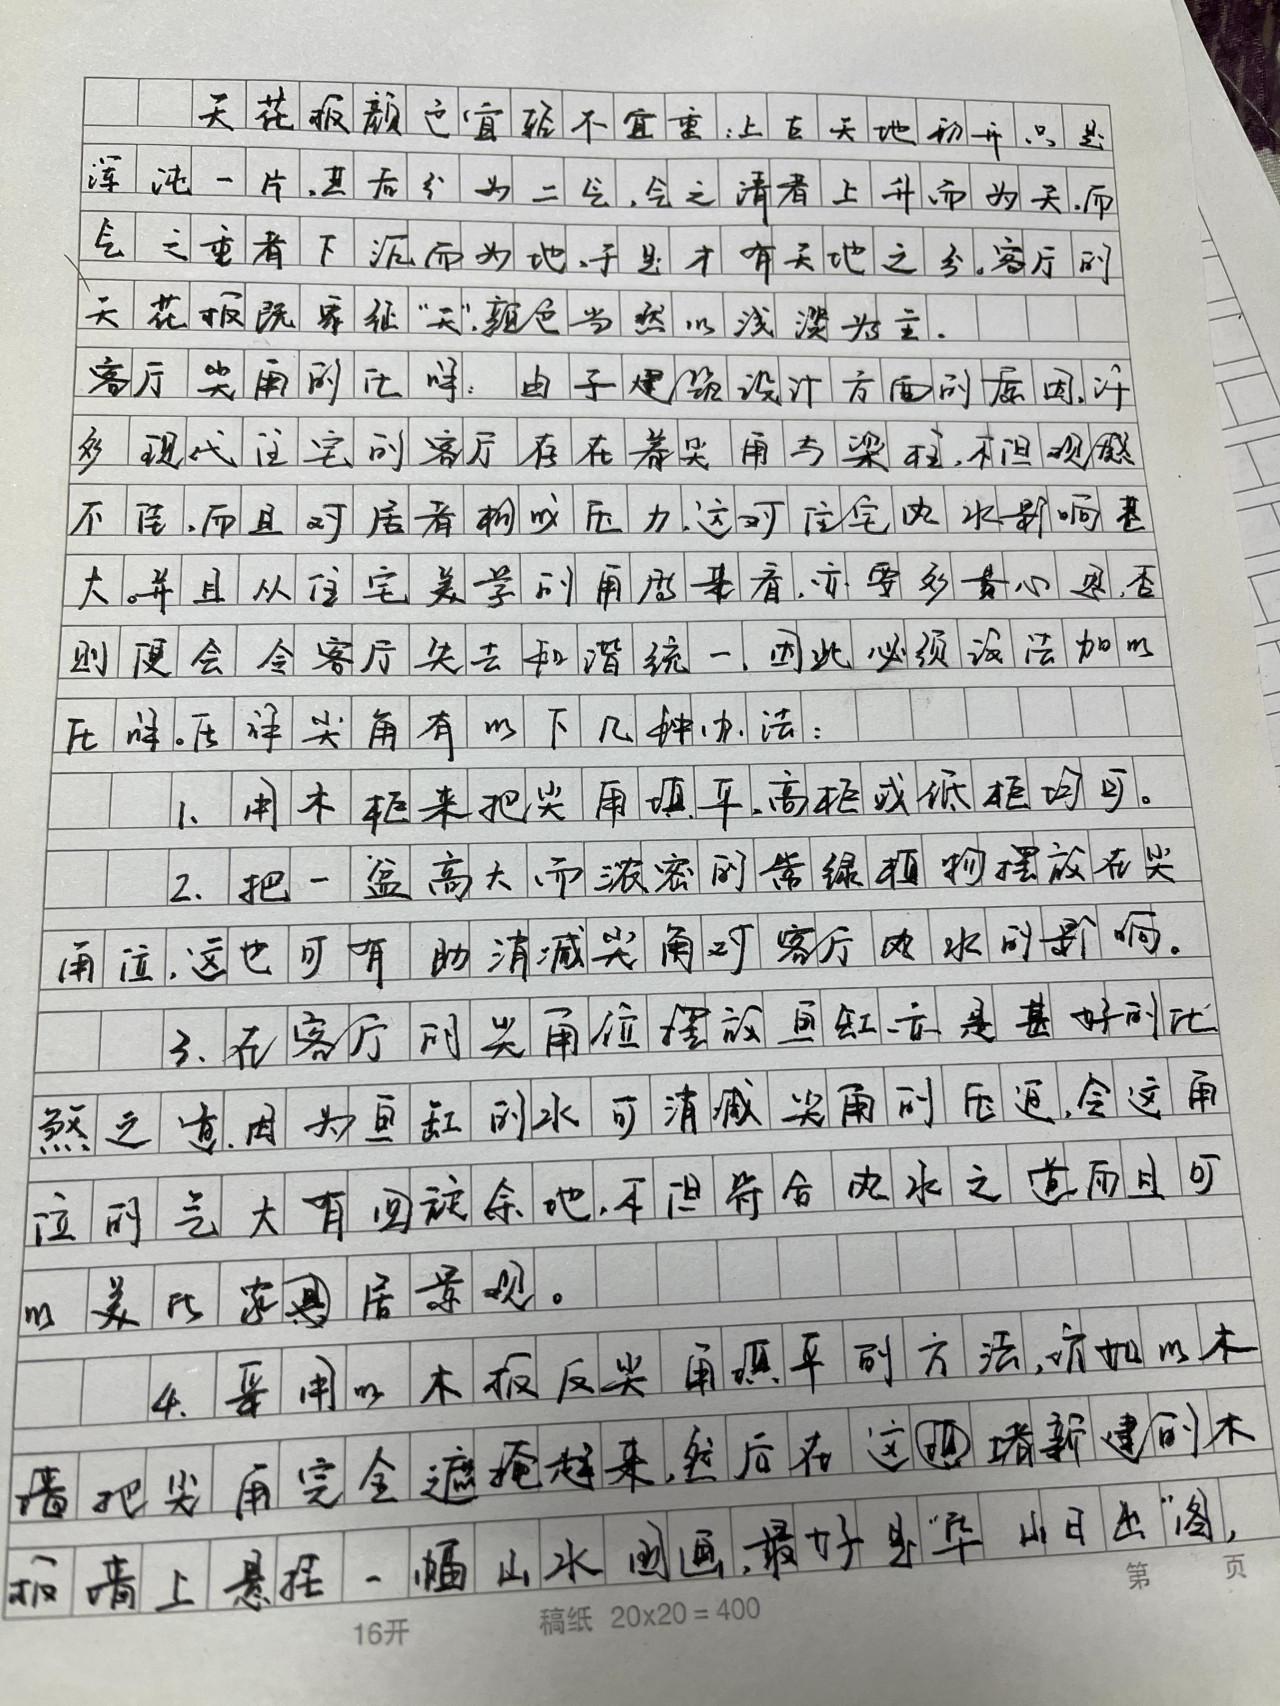 天花板颜色宜轻不宜重:上古天地初开只是
浑沌一片,其后分为二气,气之清者上升而为天,而
气之重者下沉而为地,于是才有天地之分。客厅的
天花板既象征"天",颜色当然以浅淡为主.
客厅尖角的化解:由于建筑设计方面的原因,许
多现代住宅的客厅存在着尖角与梁柱,不但观感
不佳,而且对居者构成压力,这对住宅风水影响甚
大。并且从住宅美学的角度来看,亦要多费心思,否
则便会令客厅失去和谐统一,因此必须设法加以
化解。化解尖角有以下几种办法:
1、用木柜来把尖角填平,高柜或低柜均可。
2、把一盆高大而浓密的常绿植物摆放在尖
角位,这也可有助消减尖角对客厅风水的影响。
3、在客厅的尖角位摆放鱼缸,亦是甚好的化
煞之道,因为鱼缸的水可消减尖角的压迫,令这角
位的气大有回旋余地,不但符合风水之道,而且可
以美化家居景观。
4、采用以木板反尖角填平的方法,诸如以木
墙把尖角完全遮掩起来,然后在这堵新建的木
板墙上悬挂一幅山水国画,最好是"华山日出"图,
16开 稿纸 20x20=400 第 页